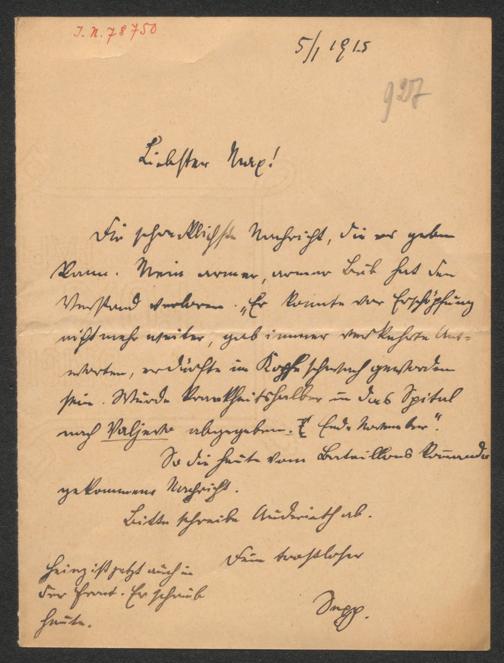 I.N. 78750
5/1 1915
927
Liebster Max!
Die schrecklichste Nachricht, die es geben
kann. Mein armer, armer Bub hat den
Verstand verloren. „Er konnte vor Erschöpfung
nicht mehr weiter, gab immer verkehrte Ant-
worten, er dürfte im Kopfe schwach geworden
sein. Wurde krankheitshalber in das Spital
nach Valjevo abgegeben. Ende November“.
So die heute vom Bataillons Kommando
gekommene Nachricht.
Bitte schreibe Auderieth ab.
Dein trostloser
Sepp.
Heinz ist jetzt auch in
der Front. Er schrieb
heute.